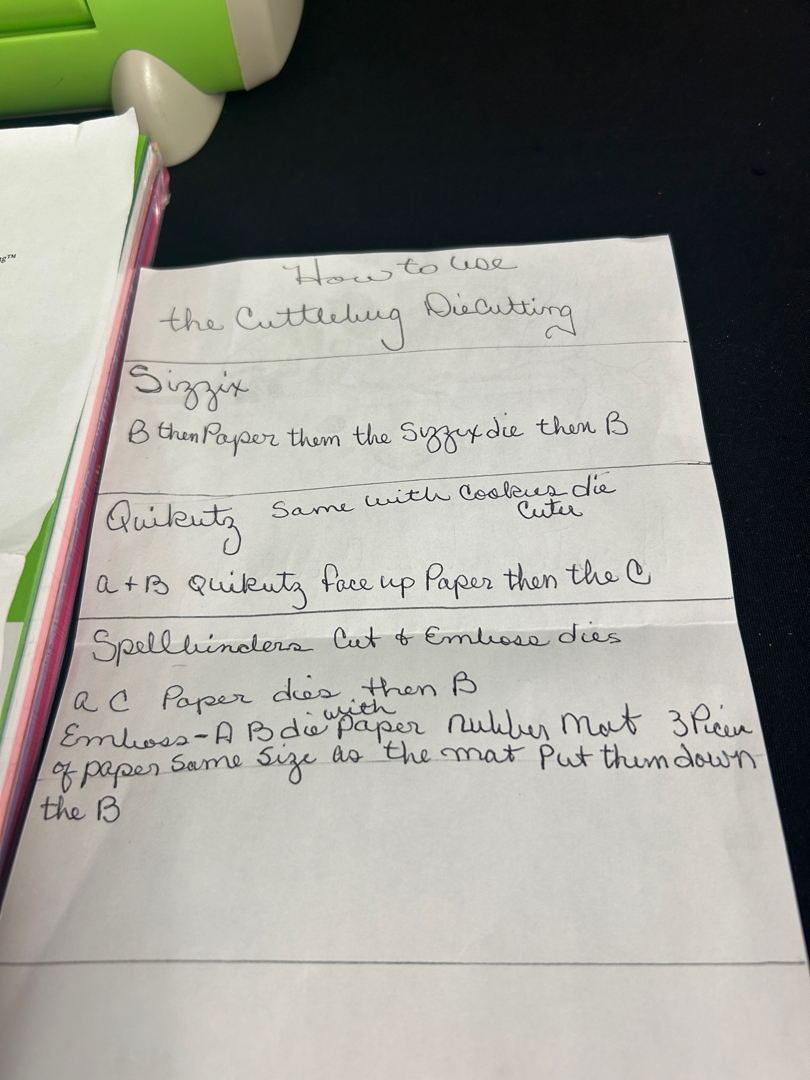 g™
How to use
the Cuttlebug Diecutting
Sizzix
B then Paper them the Sizzix die then B
Quikutz Same with Cookies die
Cuter
a + B Quikutz face up Paper then the C
Spellbinders Cut & Emboss dies
a C Paper dies then B
with
Emboss - A B die paper rubber mat 3 Piece
of paper Same Size as the mat Put them down
the B